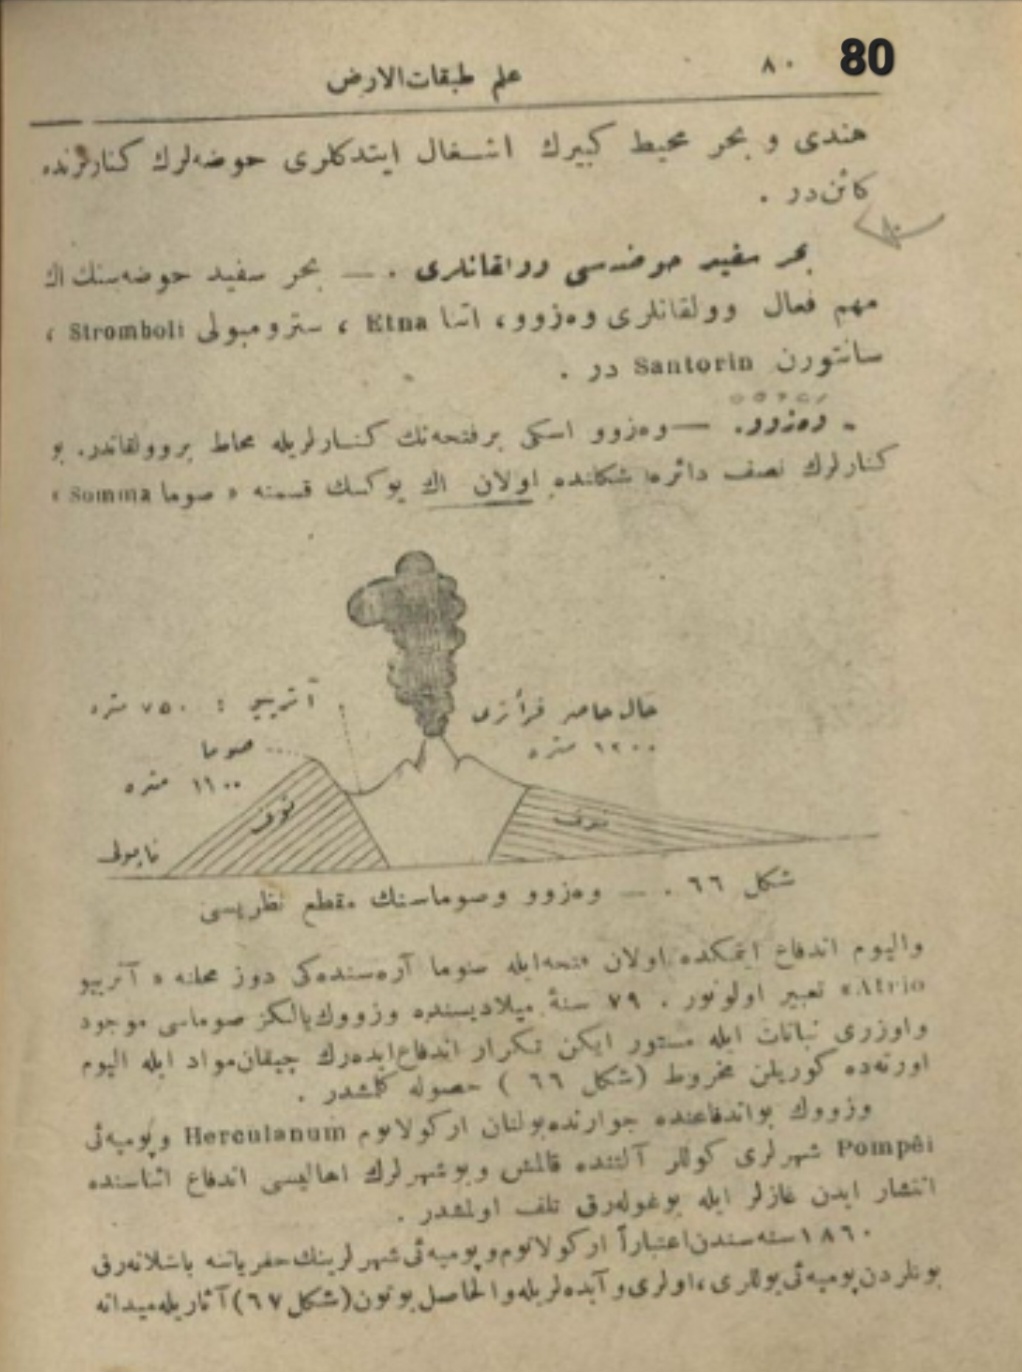 ٨٠ 80
علم طبقات‌الارض
هندی و بحر محیط کبیرك اشـغال ایتدکلری حوضه‌لرك کنارلرنده
کائن‌در .
بحر سفید حوضه‌سی وولقانلری . — بحر سفید حوضه‌سنك اك
مهم فعال وولقانلری وه‌زوو، اتنا Etna ، سترومبولی Stromboli ،
سانتورن Santorin در .
وه‌زوو. — وه‌زوو اسکی برفتحه‌نك کنـارلریله محاط بروولقاندر. بو
کنارلرك نصف دائره شکلنده اولان اك یوکسك قسمنه « صوما Somma »
آتریو : ٧٥٠ متره
حال حاضر قرأتری
١٢٠٠ متره
صوما
١١٠٠ متره
توف
توف
ناپولی
شکل ٦٦ . — وه‌زوو وصوماسنك مقطع نظریسی
والیوم اندفاع ایتمکده اولان فتحه‌ایله صوما آره‌سنده‌کی دوز محلنه « آتریو
Atrio» تعبیر اولونور . ٧٩ سنهٔ میلادیسنده وزووك یالکز صوماسی موجود
واوزری نباتات ایله مستور ایکن تکرار اندفاع‌ایده‌رك چیقان‌مواد ایله الیوم
اورته‌ده کوریلن مخروط (شکل ٦٦ ) حصوله کلمشدر .
وزووك بواندفاعنده جوارنده‌بولنان ارکولانوم Herculanum وپومپه‌ئی
Pompêi شهرلری کوللر آلتنده قالمش وبوشهرلرك اهالیسی اندفاع اثناسنده
انتشار ایدن غازلر ایله بوغوله‌رق تلف اولمشدر .
١٨٦٠ سنه‌سندن‌اعتباراً ارکولانوم‌وپومپه‌ئی شهرلرینك‌حفریاتنه باشلانه‌رق
بونلردن‌پومپه‌ئی یوللری،اولری وآبده‌لریله‌والحاصل‌بوتون(شکل ٦٧)آثاریله‌میدانه